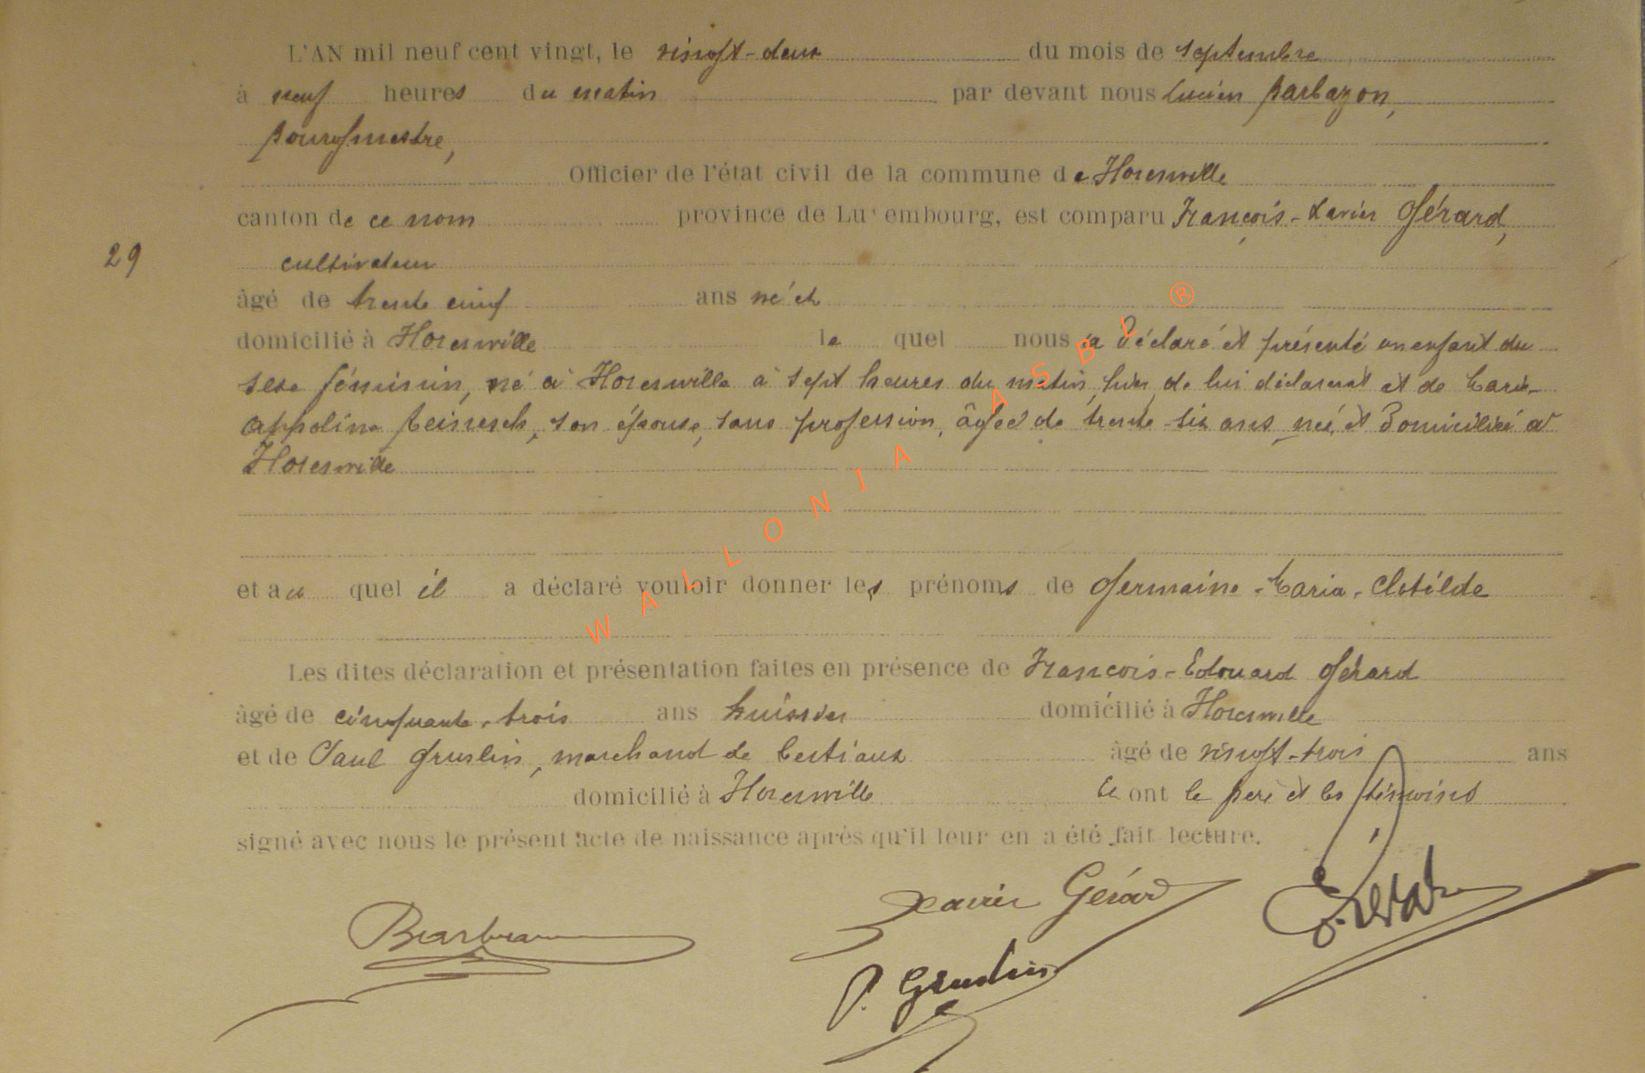 L'AN mil neuf cent vingt, le vingt-deux du mois de septembre
à neuf heures du matin par devant nous Lucien Barbazon,
Bourgmestre,
Officier de l'état civil de la commune de Hotesville
canton de ce nom province de Luxembourg, est comparu François-Xavier Gérard,
29
cultivateur
âgé de trente cinq ans né et
domicilié à le quel nous a déclaré et présenté un enfant du
sexe féminin, né à à sept heures du matin, hier, de lui déclarant et de Marie-
Appoline son épouse, sans profession, âgée de trente-six ans, née et domiciliée à
et au quel il a déclaré vouloir donner les prénoms de Germaine-Maria-Clotilde
Les dites déclaration et présentation faites en présence de François-Edouard Gérard
âgé de cinquante-trois ans huissier domicilié à
et de Paul Gruslin, marchand de bestiaux âgé de vingt-trois ans
domicilié à Et ont le père et les témoins
signé avec nous le présent acte de naissance après qu'il leur en a été fait lecture.
Xavier Gérard
P. Gruslin
WALLONIA ASBL ®